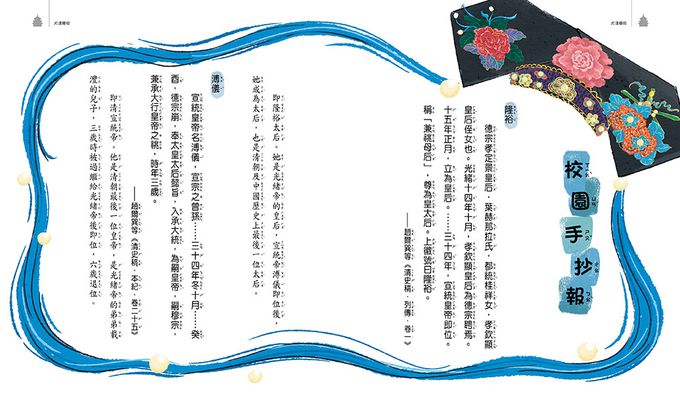 校園手抄報
隆裕
德宗孝定景皇后，葉赫那拉氏，都統桂祥女，孝欽顯
皇后侄女也。光緒十四年十月，孝欽顯皇后為德宗聘焉。
十五年正月，立為皇后。……三十四年，宣統皇帝即位。
稱「兼祧母后」，尊為皇太后。上徽號曰隆裕。
——趙爾巽等《清史稿．列傳．卷一》
即隆裕太后。她是光緒帝的皇后，宣統帝溥儀即位後，
她成為太后，也是清朝及中國歷史上最後一位太后。
溥儀
宣統皇帝名溥儀，宣宗之曾孫……三十四年冬十月……癸
酉，德宗崩，奉太皇太后懿旨，入承大統，為嗣皇帝，嗣穆宗，
兼承大行皇帝之祧，時年三歲。
——趙爾巽等《清史稿．本紀．卷二十五》
即清宣統帝。他是清朝最後一位皇帝，是光緒帝的弟弟載
灃的兒子，三歲時被過繼給光緒帝後即位，六歲退位。